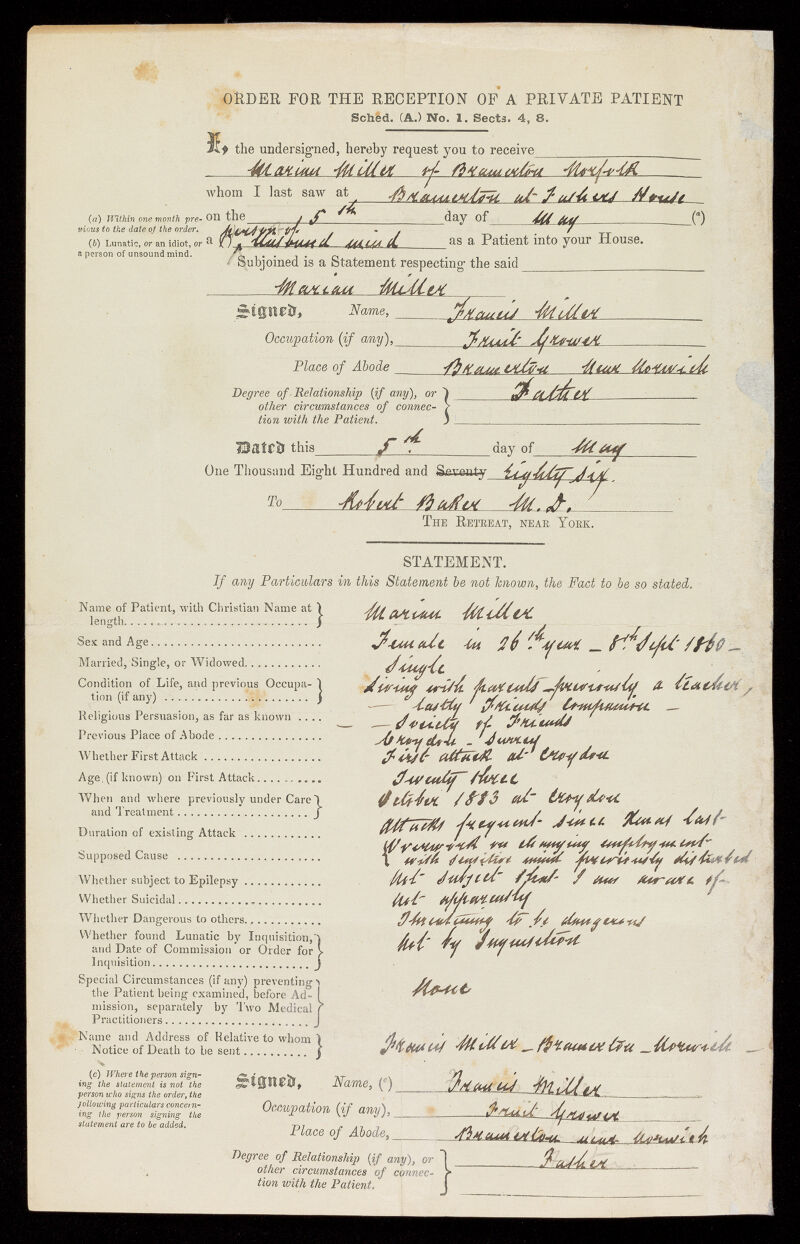 ORDER FOR THE RECEPTION OF A PRIVATE PATIENT
Sched. (A.) No. 1. Sects. 4, 8.
I, the undersigned, hereby request you to receive
Marian Miller of Bramerton Norfolk
whom I last saw at Bramerton at Fathers House
(a) Within one month previous to the date of the order.
on the 5th day of May (a)
(b) Lunatic, or an idiot, or a person of unsound mind.
a (b) person of unsound mind as a Patient into your House.
Subjoined is a Statement respecting the said
Marian Miller
Signed, Name, Francis Miller
Occupation (if any), Fruit Grower
Place of Abode Bramerton Near Norwich
Degree of Relationship (if any), or other circumstances of connection with the Patient. } Father
Dated this 5th day of May
One Thousand Eight Hundred and Seventy Eighty Six.
To Robert Baker M.D.
THE RETREAT, NEAR YORK.
STATEMENT.
If any Particulars in this Statement be not known, the Fact to be so stated.
Name of Patient, with Christian Name at length } Marian Miller
Sex and Age Female in 26th year – 8th Sept 1860 –
Married, Single, or Widowed Single
Condition of Life, and previous Occupation (if any) } Living with parents – previously a teacher,
– lastly Friends Companion –
Religious Persuasion, as far as known – Society of Friends
Previous Place of Abode Croydon – Surrey
Whether First Attack First attack at Croydon
Age (if known) on First Attack Twenty three
When and where previously under Care and Treatment } October 1883 at Croydon
Duration of existing Attack Attacks frequent since Xmas last
Supposed Cause { Overwork on changing employment
with sensitive mind previously disturbed
Whether subject to Epilepsy Not subject that I am aware of
Whether Suicidal Not apparently
Whether Dangerous to others Threatening to be dangerous
Whether found Lunatic by Inquisition, and Date of Commission or Order for Inquisition } Not by Inquisition
Special Circumstances (if any) preventing the Patient being examined, before Admission, separately by Two Medical Practitioners } None
Name and Address of Relative to whom Notice of Death to be sent } Francis Miller – Bramerton – Norwich –
(c) Where the person signing the statement is not the person who signs the order, the following particulars concerning the person signing the statement are to be added.
Signed, Name, (c) Francis Miller
Occupation (if any), Fruit Grower
Place of Abode, Bramerton near Norwich
Degree of Relationship (if any), or other circumstances of connection with the Patient. } Father